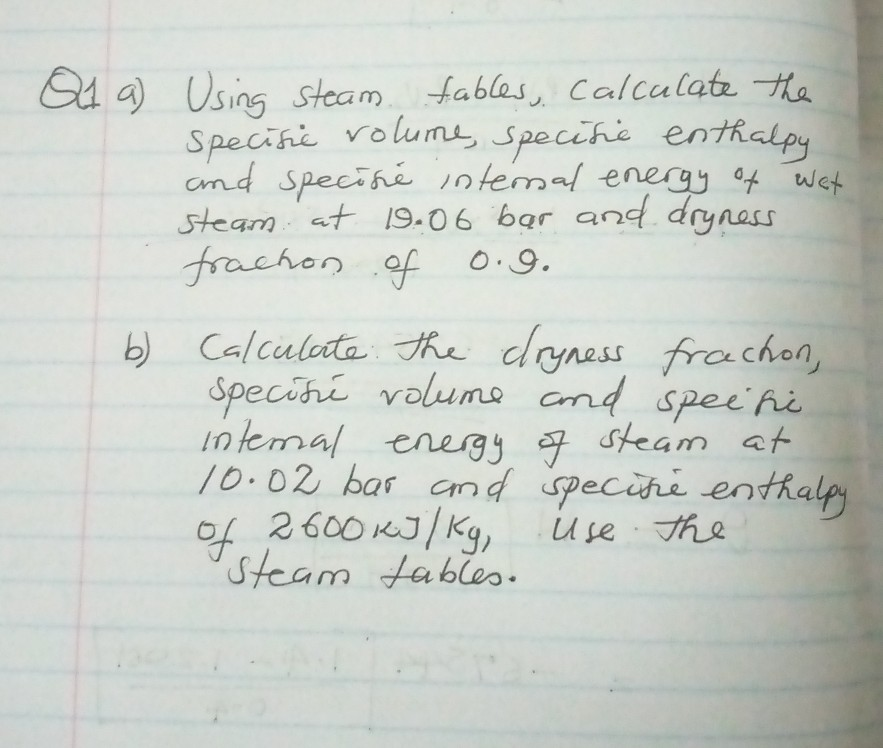 Q1 a) Using steam tables, Calculate the
specific volume, specific enthalpy
and specific internal energy of wet
steam at 19.06 bar and dryness
fraction of 0.9.
b) Calculate the dryness fraction,
specific volume and specific
internal energy of steam at
10.02 bar and specific enthalpy
of 2600 KJ/Kg, Use the
steam tables.